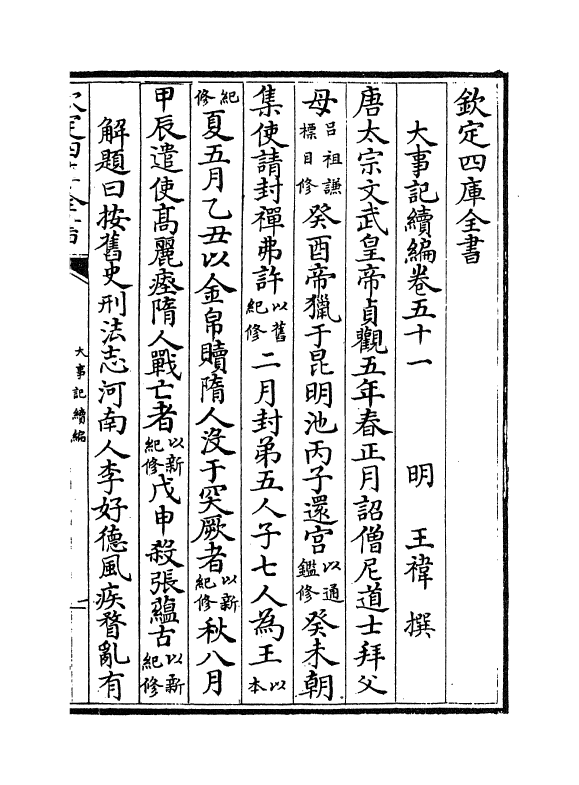 欽定四庫全書
大事記續編卷五十一　明　王禕　撰
唐太宗文武皇帝貞觀五年春正月詔僧尼道士拜父
母呂祖謙標目修癸酉帝獵于昆明池丙子還宮以通鑑修癸未朝
集使請封禪弗許以舊紀修二月封弟五人子七人為王以本
紀修夏五月乙丑以金帛贖隋人沒于突厥者以新紀修秋八月
甲辰遣使高麗瘞隋人戰亡者以新紀修戊申殺張蘊古以新紀修
解題曰按舊史刑法志河南人李好德風疾瞀亂有
欽定四庫全書
大事記續編
一